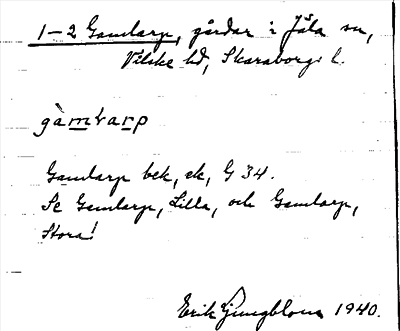 1-2 Gamlarp, gårdar i Jäla sn,
Vilske hd, Skaraborgs l.
gàmlarp
Gamlarp bek, ek, G 34.
Se Gamlarp, Lilla, och Gamlarp,
Stora!
Erik Ljungblom 1940.